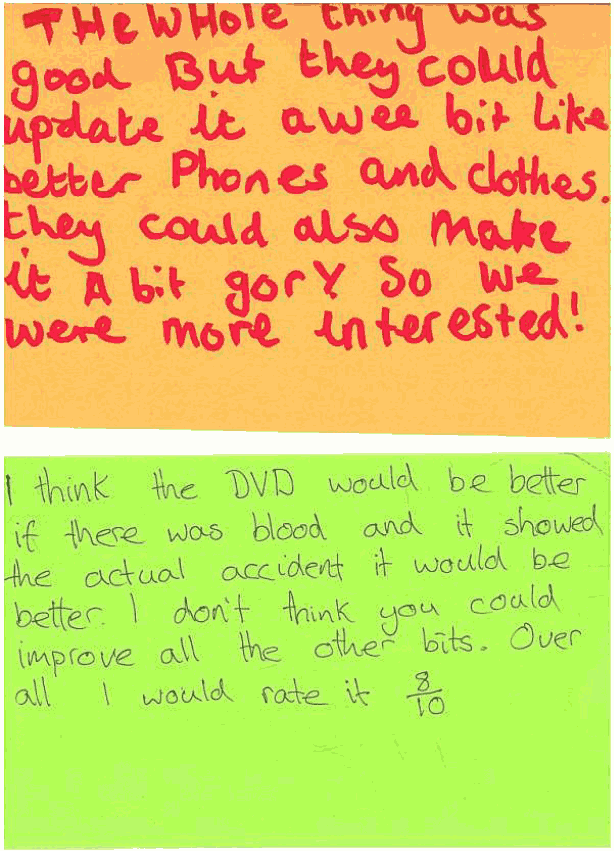 THe WHole thing was
good But they could
update it a wee bit like
better Phones and clothes.
they could also Make
it A bit gorY So we
were more interested!
I think the DVD would be better
if there was blood and it showed
the actual accident it would be
better. I don't think you could
improve all the other bits. Over
all I would rate it 8/10